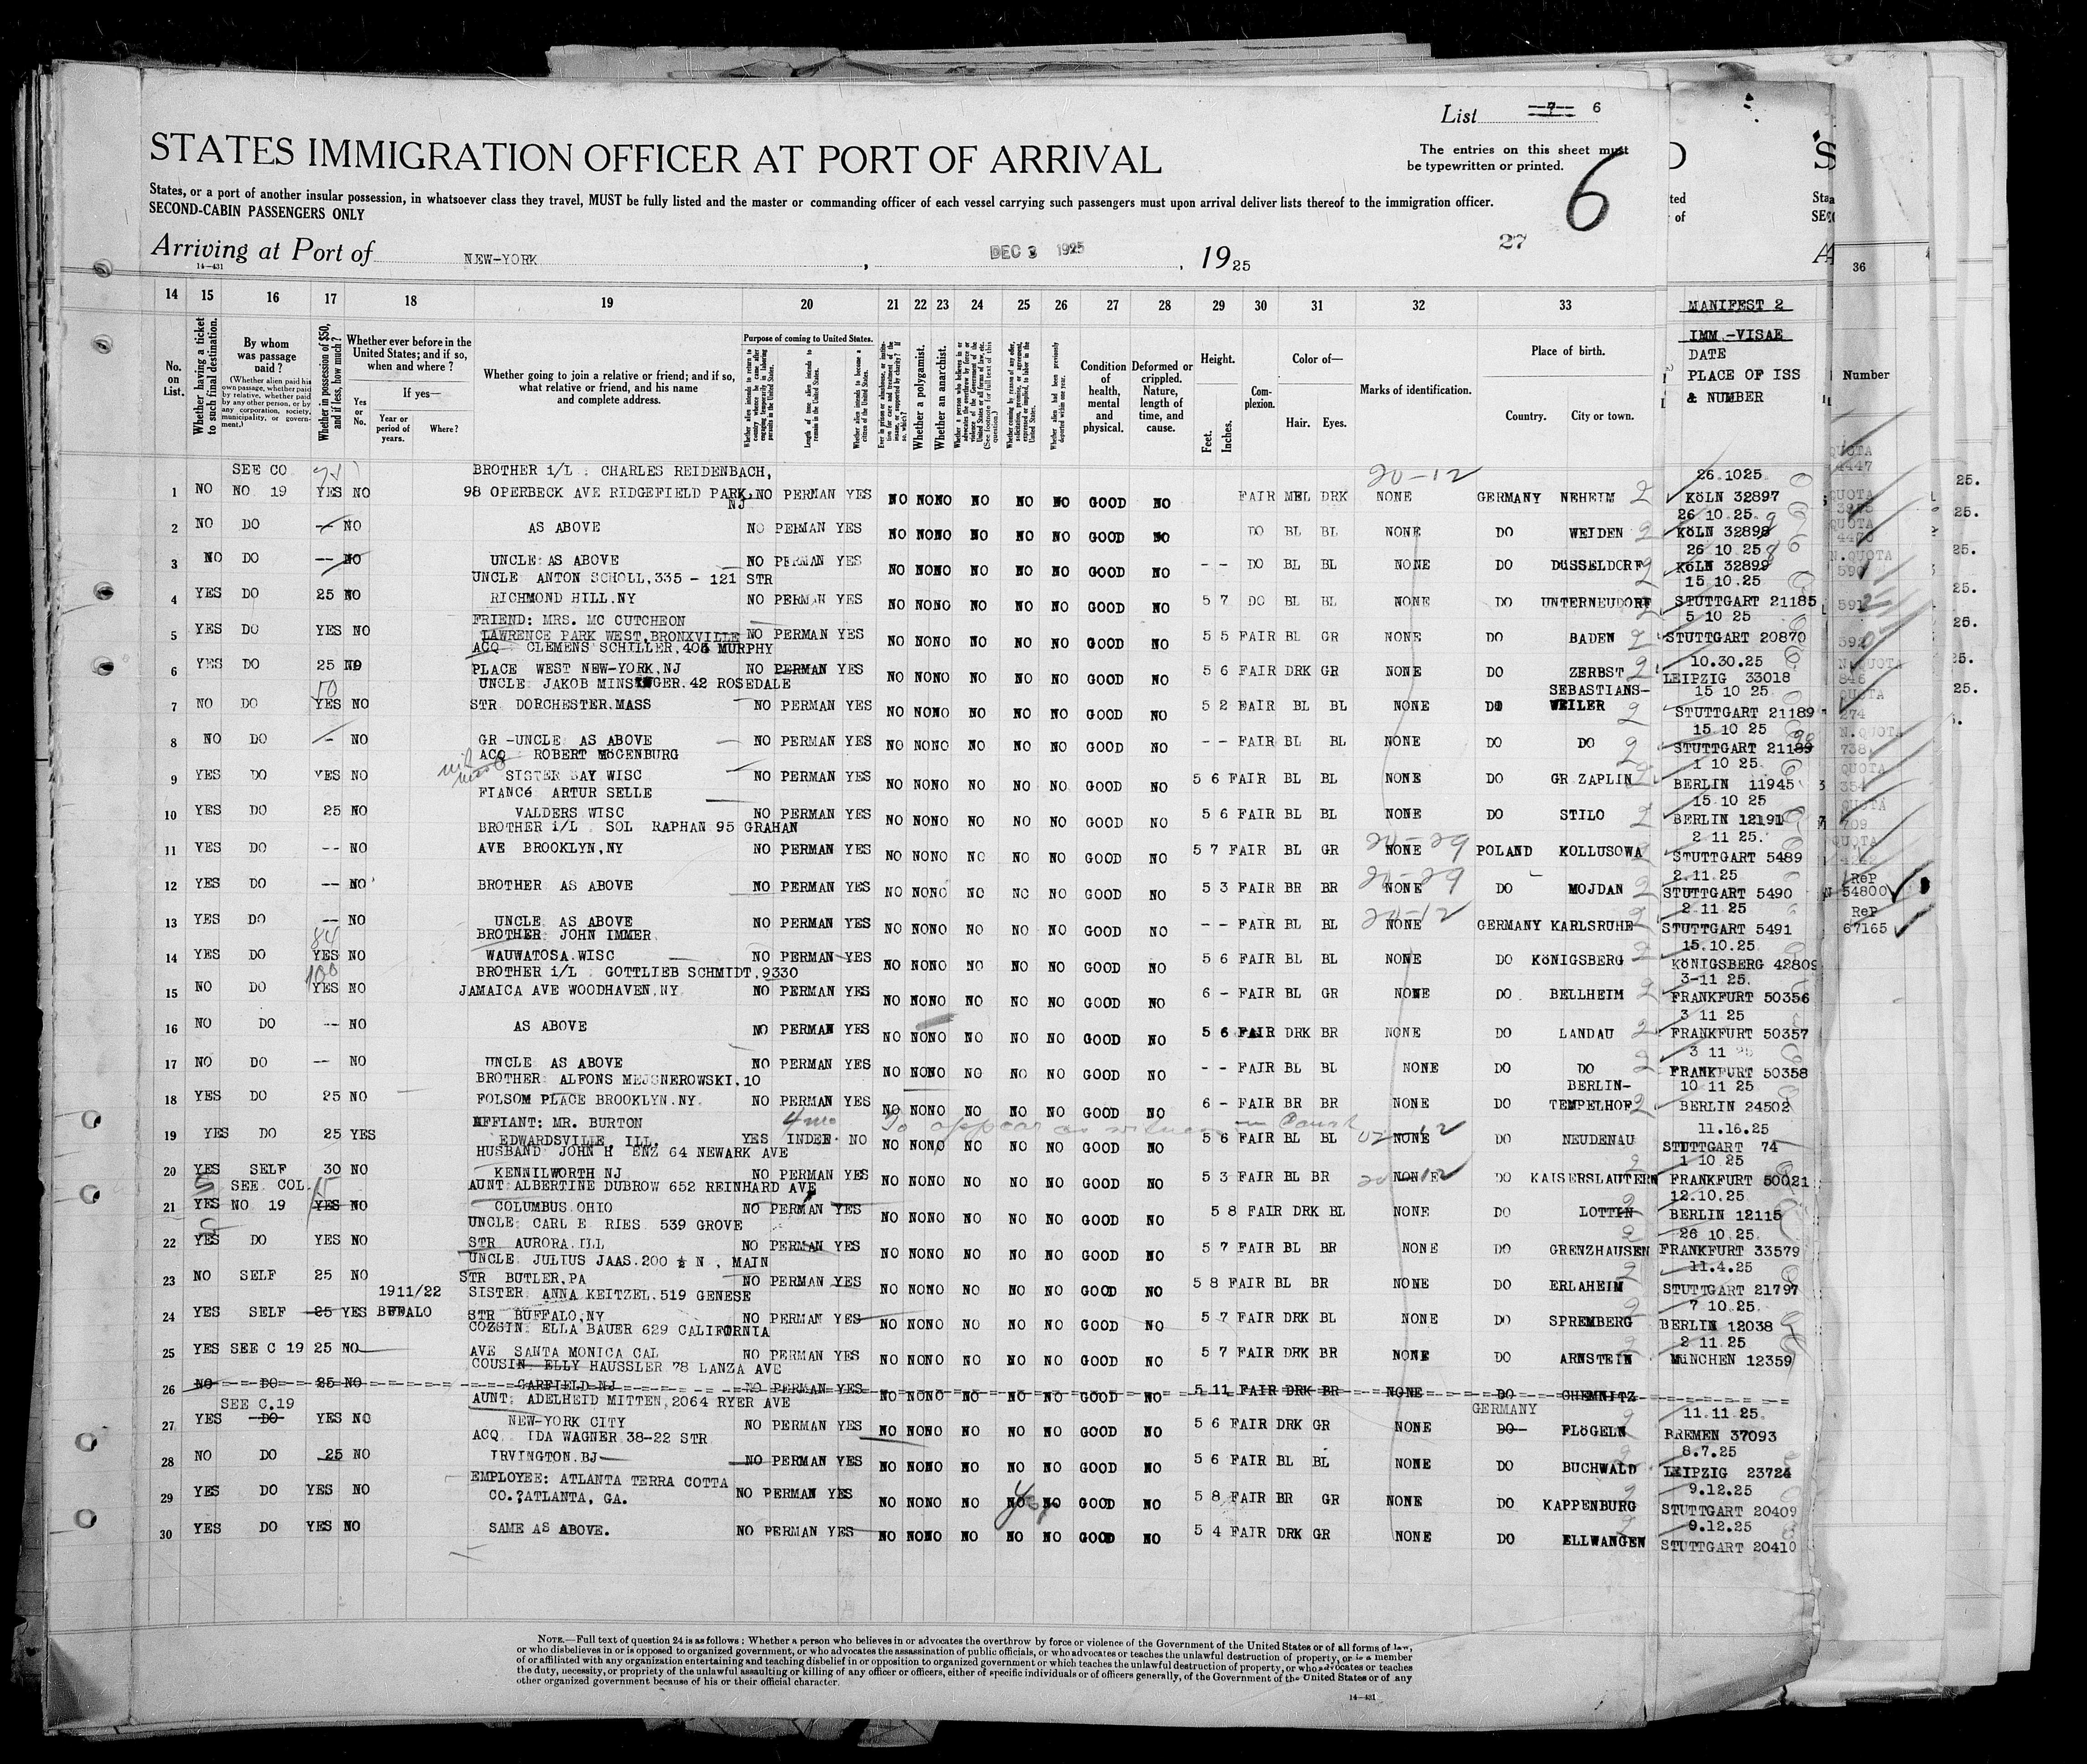 List 7 6
STATES IMMIGRATION OFFICER AT PORT OF ARRIVAL
The entries on this sheet must
be typewritten or printed.
6
States, or a port of another insular possession, in whatsoever class they travel, MUST be fully listed and the master or commanding officer of each vessel carrying such passengers must upon arrival deliver lists thereof to the immigration officer.
SECOND-CABIN PASSENGERS ONLY
27
Arriving at Port of NEW-YORK, DEC 3 1925, 1925
14—431
14 15 16 17 18 19 20 21 22 23 24 25 26 27 28 29 30 31 32 33 36
MANIFEST 2
IMM.-VISAE
DATE
PLACE OF ISS
& NUMBER
Number
No. on List.
Whether having a ticket to such final destination.
By whom was passage paid?
(Whether alien paid his own passage, whether paid by relative, whether paid by any other person, or by any corporation, society, municipality, or government.)
Whether in possession of $50, and if less, how much?
Whether ever before in the United States; and if so, when and where?
If yes—
Yes or No.
Year or period of years.
Where?
Whether going to join a relative or friend; and if so, what relative or friend, and his name and complete address.
Purpose of coming to United States.
Length of time alien intends to remain in the United States.
Whether alien intends to become a citizen of the United States.
Whether a polygamist.
Whether an anarchist.
Condition of health, mental and physical.
Deformed or crippled. Nature, length of time, and cause.
Height.
Feet.
Inches.
Complexion.
Color of—
Hair.
Eyes.
Marks of identification.
Place of birth.
Country.
City or town.
SEE CO BROTHER i/L : CHARLES REIDENBACH, 20-12 26.1025
1 NO NO 19 YES NO 98 OPERBECK AVE RIDGEFIELD PARK, NJ NO PERMAN YES NO NO NO NO NO NO GOOD NO FAIR MEL DRK NONE GERMANY NEHEIM KöLN 32897
26 10.25
2 NO DO NO AS ABOVE NO PERMAN YES NO NO NO NO NO NO GOOD NO DO BL BL NONE DO WEIDEN KöLN 32898
26 10 25
3 NO DO -- NO UNCLE: AS ABOVE NO PERMAN YES NO NO NO NO NO NO GOOD NO - - DO BL BL NONE DO DüSSELDORF KöLN 32899
UNCLE ANTON SCHOLL,335 - 121 STR 15 10.25
4 YES DO 25 NO RICHMOND HILL.NY NO PERMAN YES NO NO NO NO NO NO GOOD NO 5 7 DO BL BL NONE DO UNTERNEUDORF STUTTGART 21185
FRIEND: MRS. MC CUTCHEON 5 10 25
5 YES DO YES NO LAWRENCE PARK WEST,BRONXVILLE NO PERMAN YES NO NO NO NO NO NO GOOD NO 5 5 FAIR BL GR NONE DO BADEN STUTTGART 20870
ACQ CLEMENS SCHILLER,405 MURPHY 10.30.25
6 YES DO 25 NO PLACE WEST NEW-YORK,NJ NO PERMAN YES NO NO NO NO NO NO GOOD NO 5 6 FAIR DRK GR NONE DO ZERBST LEIPZIG 33018
50 UNCLE JAKOB MINSINGER.42 ROSEDALE SEBASTIANS- 15 10 25
7 NO DO YES NO STR DORCHESTER.MASS NO PERMAN YES NO NO NO NO NO NO GOOD NO 5 2 FAIR BL BL NONE DO WEILER STUTTGART 21189
15 10 25
8 NO DO - NO GR -UNCLE AS ABOVE NO PERMAN YES NO NO NO NO NO NO GOOD NO - - FAIR BL BL NONE DO DO STUTTGART 21189
ACQ ROBERT MöGENBURG 1 10 25
9 YES DO YES NO SISTER BAY WISC NO PERMAN YES NO NO NO NO NO NO GOOD NO 5 6 FAIR BL BL NONE DO GR ZAPLIN BERLIN 11945
FIANCé ARTUR SELLE 15 10 25
10 YES DO 25 NO VALDERS WISC NO PERMAN YES NO NO NO NO NO NO GOOD NO 5 6 FAIR BL BL NONE DO STILO BERLIN 12191
BROTHER i/L SOL RAPHAN 95 GRAHAN 20-29 2 11 25.
11 YES DO -- NO AVE BROOKLYN,NY NO PERMAN YES NO NO NO NO NO NO GOOD NO 5 7 FAIR BL GR NONE POLAND KOLLUSOWA STUTTGART 5489
20-29 2.11.25 ReP
12 YES DO -- NO BROTHER AS ABOVE NO PERMAN YES NO NO NO NO NO NO GOOD NO 5 3 FAIR BR BR NONE DO MOJDAN STUTTGART 5490 54800
20-12 2 11 25 ReP
13 YES DO -- NO UNCLE AS ABOVE NO PERMAN YES NO NO NO NO NO NO GOOD NO - - FAIR BL BL NONE GERMANY KARLSRUHE STUTTGART 5491 67165
84 BROTHER: JOHN IMMER 15.10.25
14 YES DO YES NO WAUWATOSA.WISC NO PERMAN YES NO NO NO NO NO NO GOOD NO 5 6 FAIR BL BL NONE DO KöNIGSBERG KöNIGSBERG 42809
100 BROTHER i/L GOTTLIEB SCHMIDT,9330 3-11 25.
15 NO DO YES NO JAMAICA AVE WOODHAVEN,NY NO PERMAN YES NO NO NO NO NO NO GOOD NO 6 - FAIR BL GR NONE DO BELLHEIM FRANKFURT 50356
3 11 25
16 NO DO -- NO AS ABOVE NO PERMAN YES NO NO NO NO NO NO GOOD NO 5 6 FAIR DRK BR NONE DO LANDAU FRANKFURT 50357
3 11 25
17 NO DO -- NO UNCLE AS ABOVE NO PERMAN YES NO NO NO NO NO NO GOOD NO - - FAIR BL BL NONE DO DO FRANKFURT 50358
BROTHER: ALFONS MEJSNEROWSKI.10 BERLIN- 10 11 25
18 YES DO 25 NO FOLSOM PLACE BROOKLYN.NY. NO PERMAN YES NO NO NO NO NO NO GOOD NO 6 - FAIR BR BR NONE DO TEMPELHOF BERLIN 24502
AFFIANT: MR. BURTON 4 mo To appear as witness in Court 11.16.25
19 YES DO 25 YES EDWARDSVILLE, ILL. YES INDEF. NO NO NO NO NO NO NO GOOD NO 5 6 FAIR BL BL NONE DO NEUDENAU STUTTGART 74
HUSBAND JOHN H ENZ 64 NEWARK AVE 1 10 25
20 YES SELF 30 NO KENNILWORTH NJ NO PERMAN YES NO NO NO NO NO NO GOOD NO 5 3 FAIR BL BR NONE DO KAISERSLAUTERN FRANKFURT 50021
SEE COL. AUNT ALBERTINE DUBROW 652 REINHARD AVE 12.10.25
21 YES NO 19 YES NO COLUMBUS.OHIO NO PERMAN YES NO NO NO NO NO NO GOOD NO 5 8 FAIR DRK BL NONE DO LOTTIN BERLIN 12115
UNCLE: CARL E RIES 539 GROVE 26 10.25
22 YES DO YES NO STR AURORA.ILL NO PERMAN YES NO NO NO NO NO NO GOOD NO 5 7 FAIR BL BR NONE DO GRENZHAUSEN FRANKFURT 33579
UNCLE JULIUS JAAS.200 ½ N , MAIN 11.4.25
23 NO SELF 25 NO STR BUTLER,PA NO PERMAN YES NO NO NO NO NO NO GOOD NO 5 8 FAIR BL BR NONE DO ERLAHEIM STUTTGART 21797
1911/22 SISTER ANNA KEITZEL,519 GENESE 7 10.25
24 YES SELF 25 YES BFFALO STR BUFFALO,NY NO PERMAN YES NO NO NO NO NO NO GOOD NO 5 7 FAIR DRK BL NONE DO SPREMBERG BERLIN 12038
COZSIN: ELLA BAUER 629 CALIFORNIA 2 11.25
25 YES SEE C 19 25 NO AVE SANTA MONICA CAL NO PERMAN YES NO NO NO NO NO NO GOOD NO 5 7 FAIR DRK BR NONE DO ARNSTEIN MüNCHEN 12359
COUSIN ELLY HAUSSLER 78 LANZA AVE
26 NO DO 25 NO GARFIELD NJ NO PERMAN YES NO NO NO NO NO NO GOOD NO 5 11 FAIR DRK BR NONE DO CHEMNITZ
SEE C.19 AUNT: ADELHEID MITTEN,2064 RYER AVE GERMANY 11.11 25.
27 YES DO YES NO NEW-YORK CITY NO PERMAN YES NO NO NO NO NO NO GOOD NO 5 6 FAIR DRK GR NONE DO FLöGELN BREMEN 37093
ACQ IDA WAGNER 38-22 STR 8.7.25
28 NO DO 25 NO IRVINGTON.BJ NO PERMAN YES NO NO NO NO NO NO GOOD NO 5 6 FAIR BL BL NONE DO BUCHWALD LEIPZIG 23724
EMPLOYEE: ATLANTA TERRA COTTA 9.12.25
29 YES DO YES NO CO.?ATLANTA, GA. NO PERMAN YES NO NO NO NO NO NO GOOD NO 5 8 FAIR BR GR NONE DO KAPPENBURG STUTTGART 20409
9.12.25
30 YES DO YES NO SAME AS ABOVE. NO PERMAN YES NO NO NO NO NO NO GOOD NO 5 4 FAIR DRK GR NONE DO ELLWANGEN STUTTGART 20410
NOTE.—Full text of question 24 is as follows: Whether a person who believes in or advocates the overthrow by force or violence of the Government of the United States or of all forms of law,
or who disbelieves in or is opposed to organized government, or who advocates the assassination of public officials, or who advocates or teaches the unlawful destruction of property, or is a member
of or affiliated with any organization entertaining and teaching disbelief in or opposition to organized government or which teaches the unlawful destruction of property, or who advocates or teaches
the duty, necessity, or propriety of the unlawful assaulting or killing of any officer or officers, either of specific individuals or of officers generally, of the Government of the United States or of any
other organized government because of his or their official character.
14—431